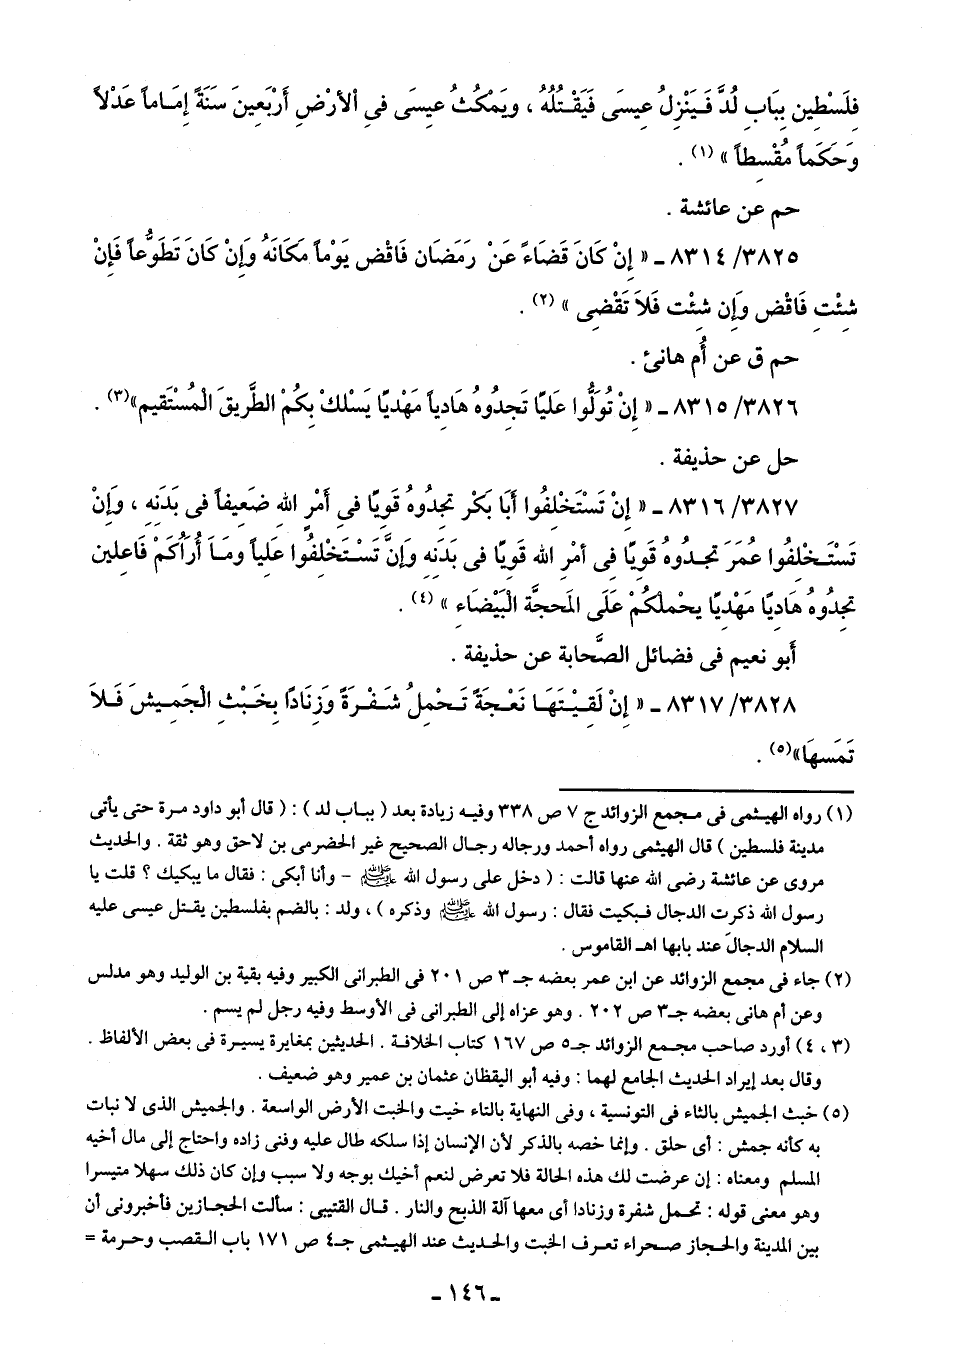 فِلَسْطِين بِبَابِ لُدَّ فَيَنْزِلُ عيِسَى فَيَقْتُلُهُ ، ويَمْكُثُ عِيسَى فِى ألأرْضِ أَرْبَعِينَ سَنَةً إِمَاماً عَدْلاً
وَحَكَماً مُقْسِطاً » (١) .
حم عن عائشة .
٨٣١٤/٣٨٢٥ ـ « إِنْ كَانَ قَضَاءً عَنْ رَمَضَان فَاقْضِ يَوْماً مَكَانَهُ وَإِنْ كَانَ تَطَوُّعاً فَإِنْ
شِئْتِ فَاقْضِ وَإِن شِئْت فَلاَ تَقْضِى » (٢) .
حم ق عن أُم هانئ .
٨٣١٥/٣٨٢٦ ـ « إِنْ تُوَلُّوا عَليًا تَجِدُوهُ هَادِياً مَهْدِيًا يَسْلكُ بِكُمْ الطَّرِيقَ الْمُسْتَقِيم»(٣) .
حل عن حذيفة .
٨٣١٦/٣٨٢٧ ـ « إِنْ تَسْتَخْلِفُوا أَبَا بَكْر تجِدُوهُ قَوِيًا فِى أَمْرِ الله ضَعِيفاً فى بَدَنِهِ ، وَإِنْ
تَسْتَخْلِفُوا عُمَرَ تجِدُوهُ قَوِيًا فِى أمْرِ الله قَوِيًا فى بَدَنِهِ وَإِنَّ تَسْتَخْلِفُوا عَلِياً ومَا أُرَاكُمْ فَاعِلِين
تجِدُوهُ هَادِيًا مَهْدِيًا يحْمِلكُمْ عَلَى المَحجَّة الْبَيْضَاءِ » (٤) .
أبو نعيم فى فضائل الصَّحابة عن حذيفة .
٨٣١٧/٣٨٢٨ ـ « إِنْ لَقِيْتَهَا نَعْجَةً تَحْمِلُ شَفْرَةً وَزِنَادًا بِخَبْثِ الْجَمِيشِ فَلاَ
تَمَسهَا»(٥) .
(١) رواه الهيثمى فى مجمع الزوائد ج ٧ ص ٣٣٨ وفيه زيادة بعد ( بباب لد ) : ( قال أبو داود مرة حتى يأتى
مدينة فلسطين ) قال الهيثمى رواه أحمد ورجاله رجال الصحيح غير الحضرمى بن لاحق وهو ثقة . والحديث
مروى عن عائشة رضى الله عنها قالت : ( دخل على رسول الله ﷺ – وأنا أبكى : فقال ما يبكيك ؟ قلت يا
رسول الله ذكرت الدجال فبكيت فقال : رسول الله ﷺ وذكره ) ، ولد : بالضم بفلسطين يقتل عيسى عليه
السلام الدجال عند بابها اهـ القاموس .
(٢) جاء فى مجمع الزوائد عن ابن عمر بعضه جـ ٣ ص ٢٠١ فى الطبرانى الكبير وفيه بقية بن الوليد وهو مدلس
وعن أم هانى بعضه جـ٣ ص ٢٠٢ . وهو عزاه إلى الطبرانى فى الأوسط وفيه رجل لم يسم .
(٣ ، ٤) أورد صاحب مجمع الزوائد جـ٥ ص ١٦٧ كتاب الخلافة . الحديثين بمغايرة يسيرة فى بعض الألفاظ .
وقال بعد إيراد الحديث الجامع لهما : وفيه أبو اليقظان عثمان بن عمير وهو ضعيف .
(٥) خبث الجميش بالثاء فى التونسية ، وفى النهاية بالتاء خيت والخبت الأرض الواسعة . والجميش الذى لا نبات
به كأنه جمش : أى حلق . وإنما خصه بالذكر لأن الإنسان إذا سلكه طال عليه وفنى زاده واحتاج إلى مال أخيه
المسلم ومعناه : إن عرضت لك هذه الحالة فلا تعرض لنعم أخيك بوجه ولا سبب وإن كان ذلك سهلا متيسرا
وهو معنى قوله : تحمل شفرة وزنادا أى معها آلة الذبح والنار . قال القتيبى : سألت الحجازين فأخبرونى أن
بين المدينة والحجاز صحراء تعرف الخبت والحديث عند الهيثمى جـ٤ ص ١٧١ باب الغصب وحرمة =
ـ ١٤٦ ـ